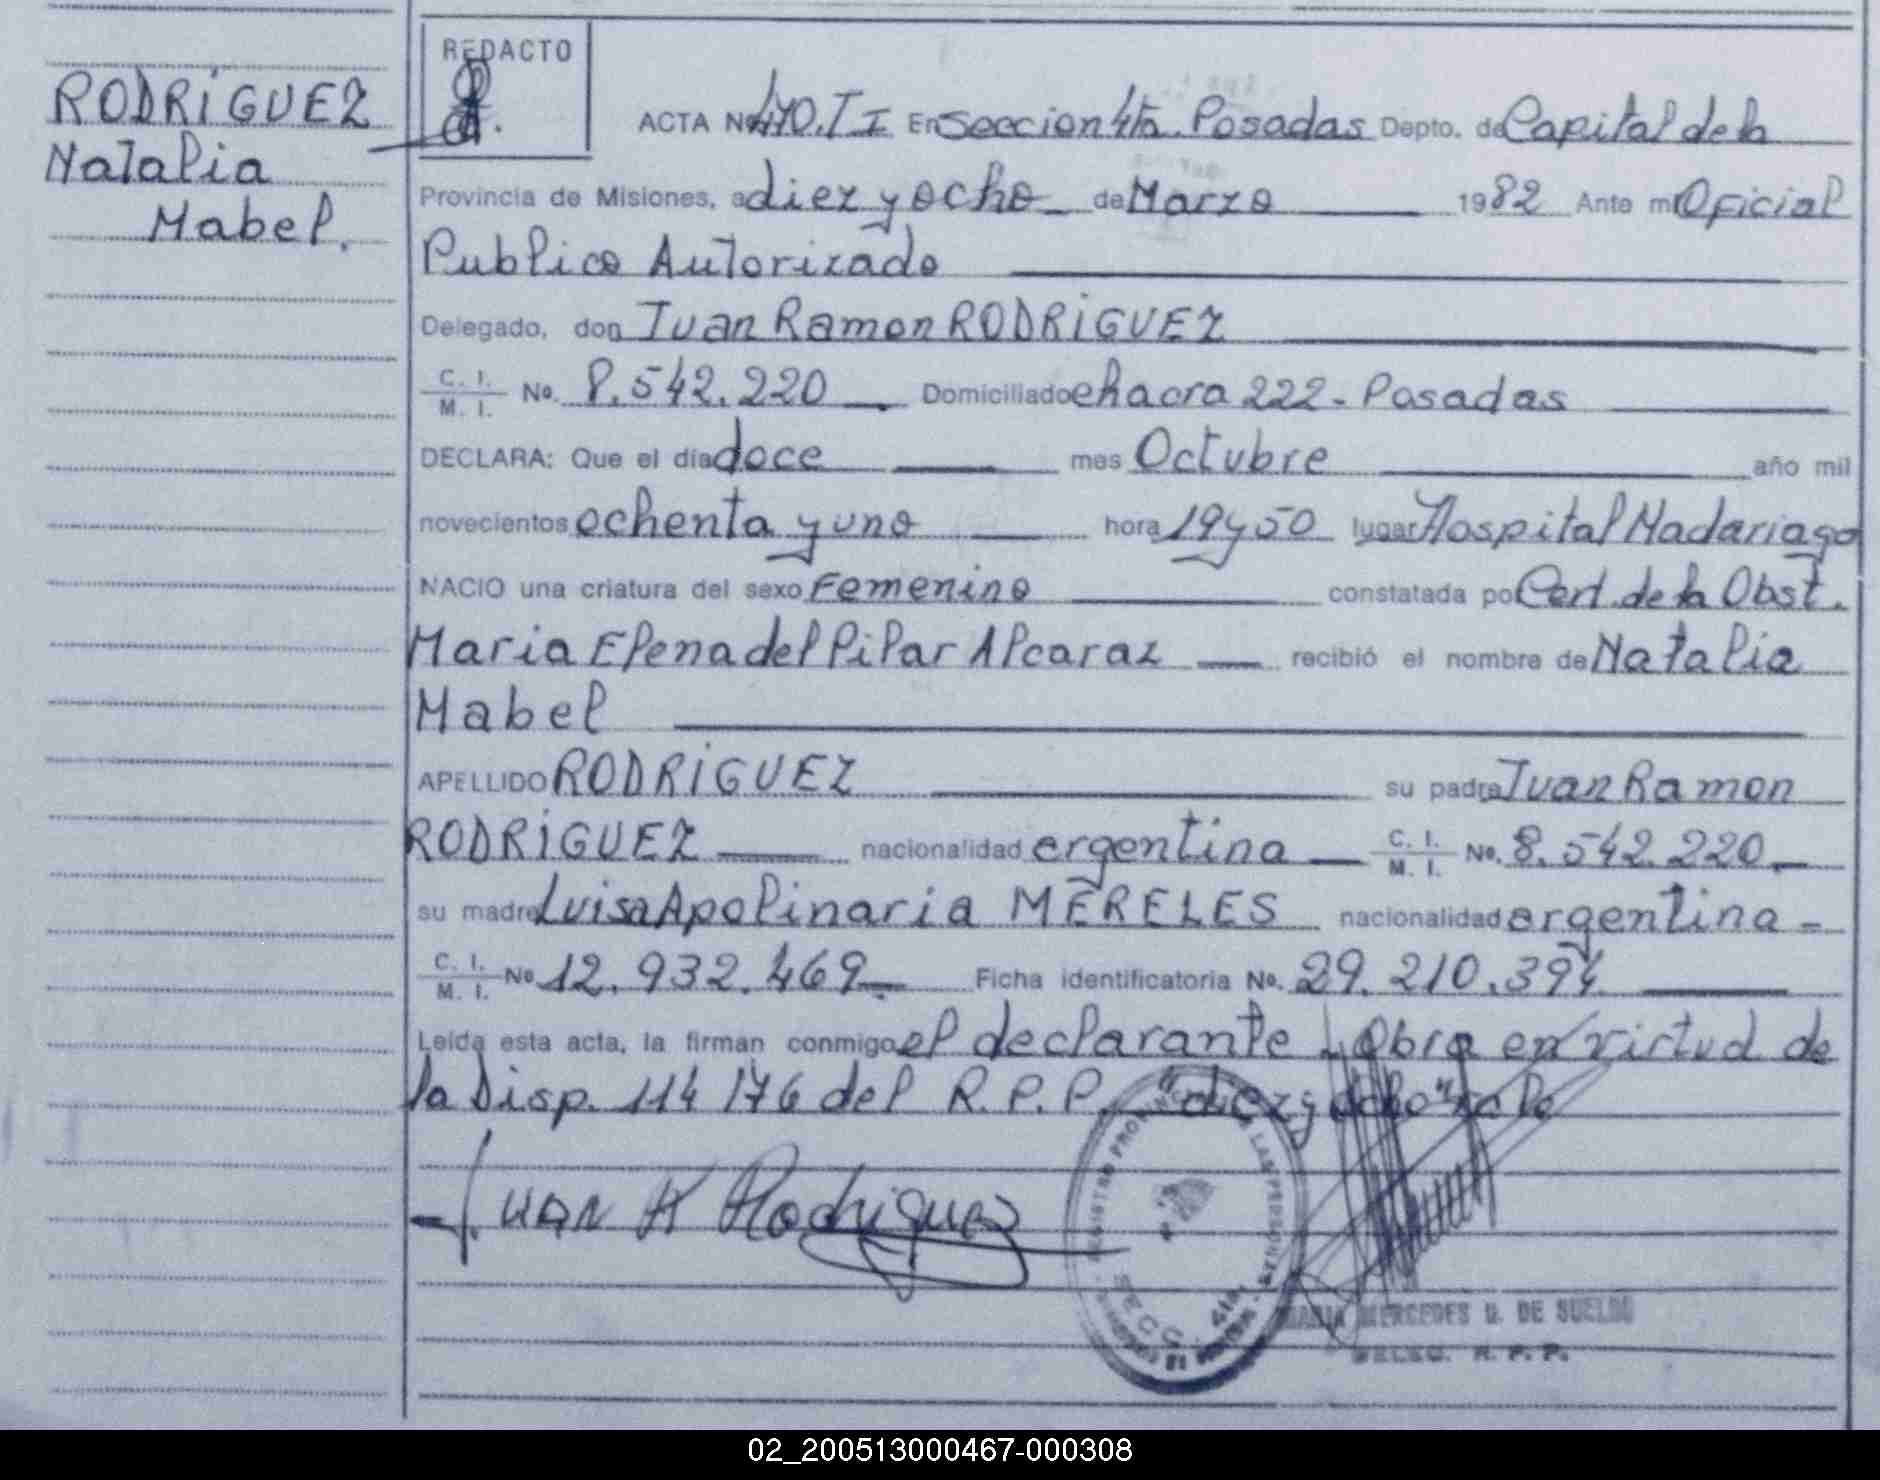 RODRÍGUEZ
Natalia
Mabel.
REDACTO
ACTA No 470. T I En Seccion 4ta. Posadas Depto. de Capital de la
Provincia de Misiones, a diez y ocho de Marzo 1982 Ante mi Oficial
Publico Autorizado
Delegado, don Juan Ramon RODRÍGUEZ
C. I. / M. I. No. 8.542.220 Domiciliado chacra 222 - Posadas
DECLARA: Que el día doce mes Octubre año mil
novecientos ochenta y uno hora 19 y 50 lugar Hospital Madariaga
NACIO una criatura del sexo Femenino constatada po Cert. de la Obst.
Maria Elena del Pilar Alcaraz recibió el nombre de Natalia
Mabel
APELLIDO RODRÍGUEZ su padre Juan Ramon
RODRÍGUEZ nacionalidad argentina C. I. / M. I. No. 8.542.220
su madre Luisa Apolinaria MERELES nacionalidad argentina -
C. I. / M. I. No 12.932.469 Ficha identificatoria No. 29.210.394
Leida esta acta, la firman conmigo el declarante - Obra en virtud de
la Disp. 114/76 del R.P.P. "diez y ocho" vale
Juan R Rodriguez
MARIA MERCEDES D. DE SUELDO
DELEG. R. P. P.
02_200513000467-000308